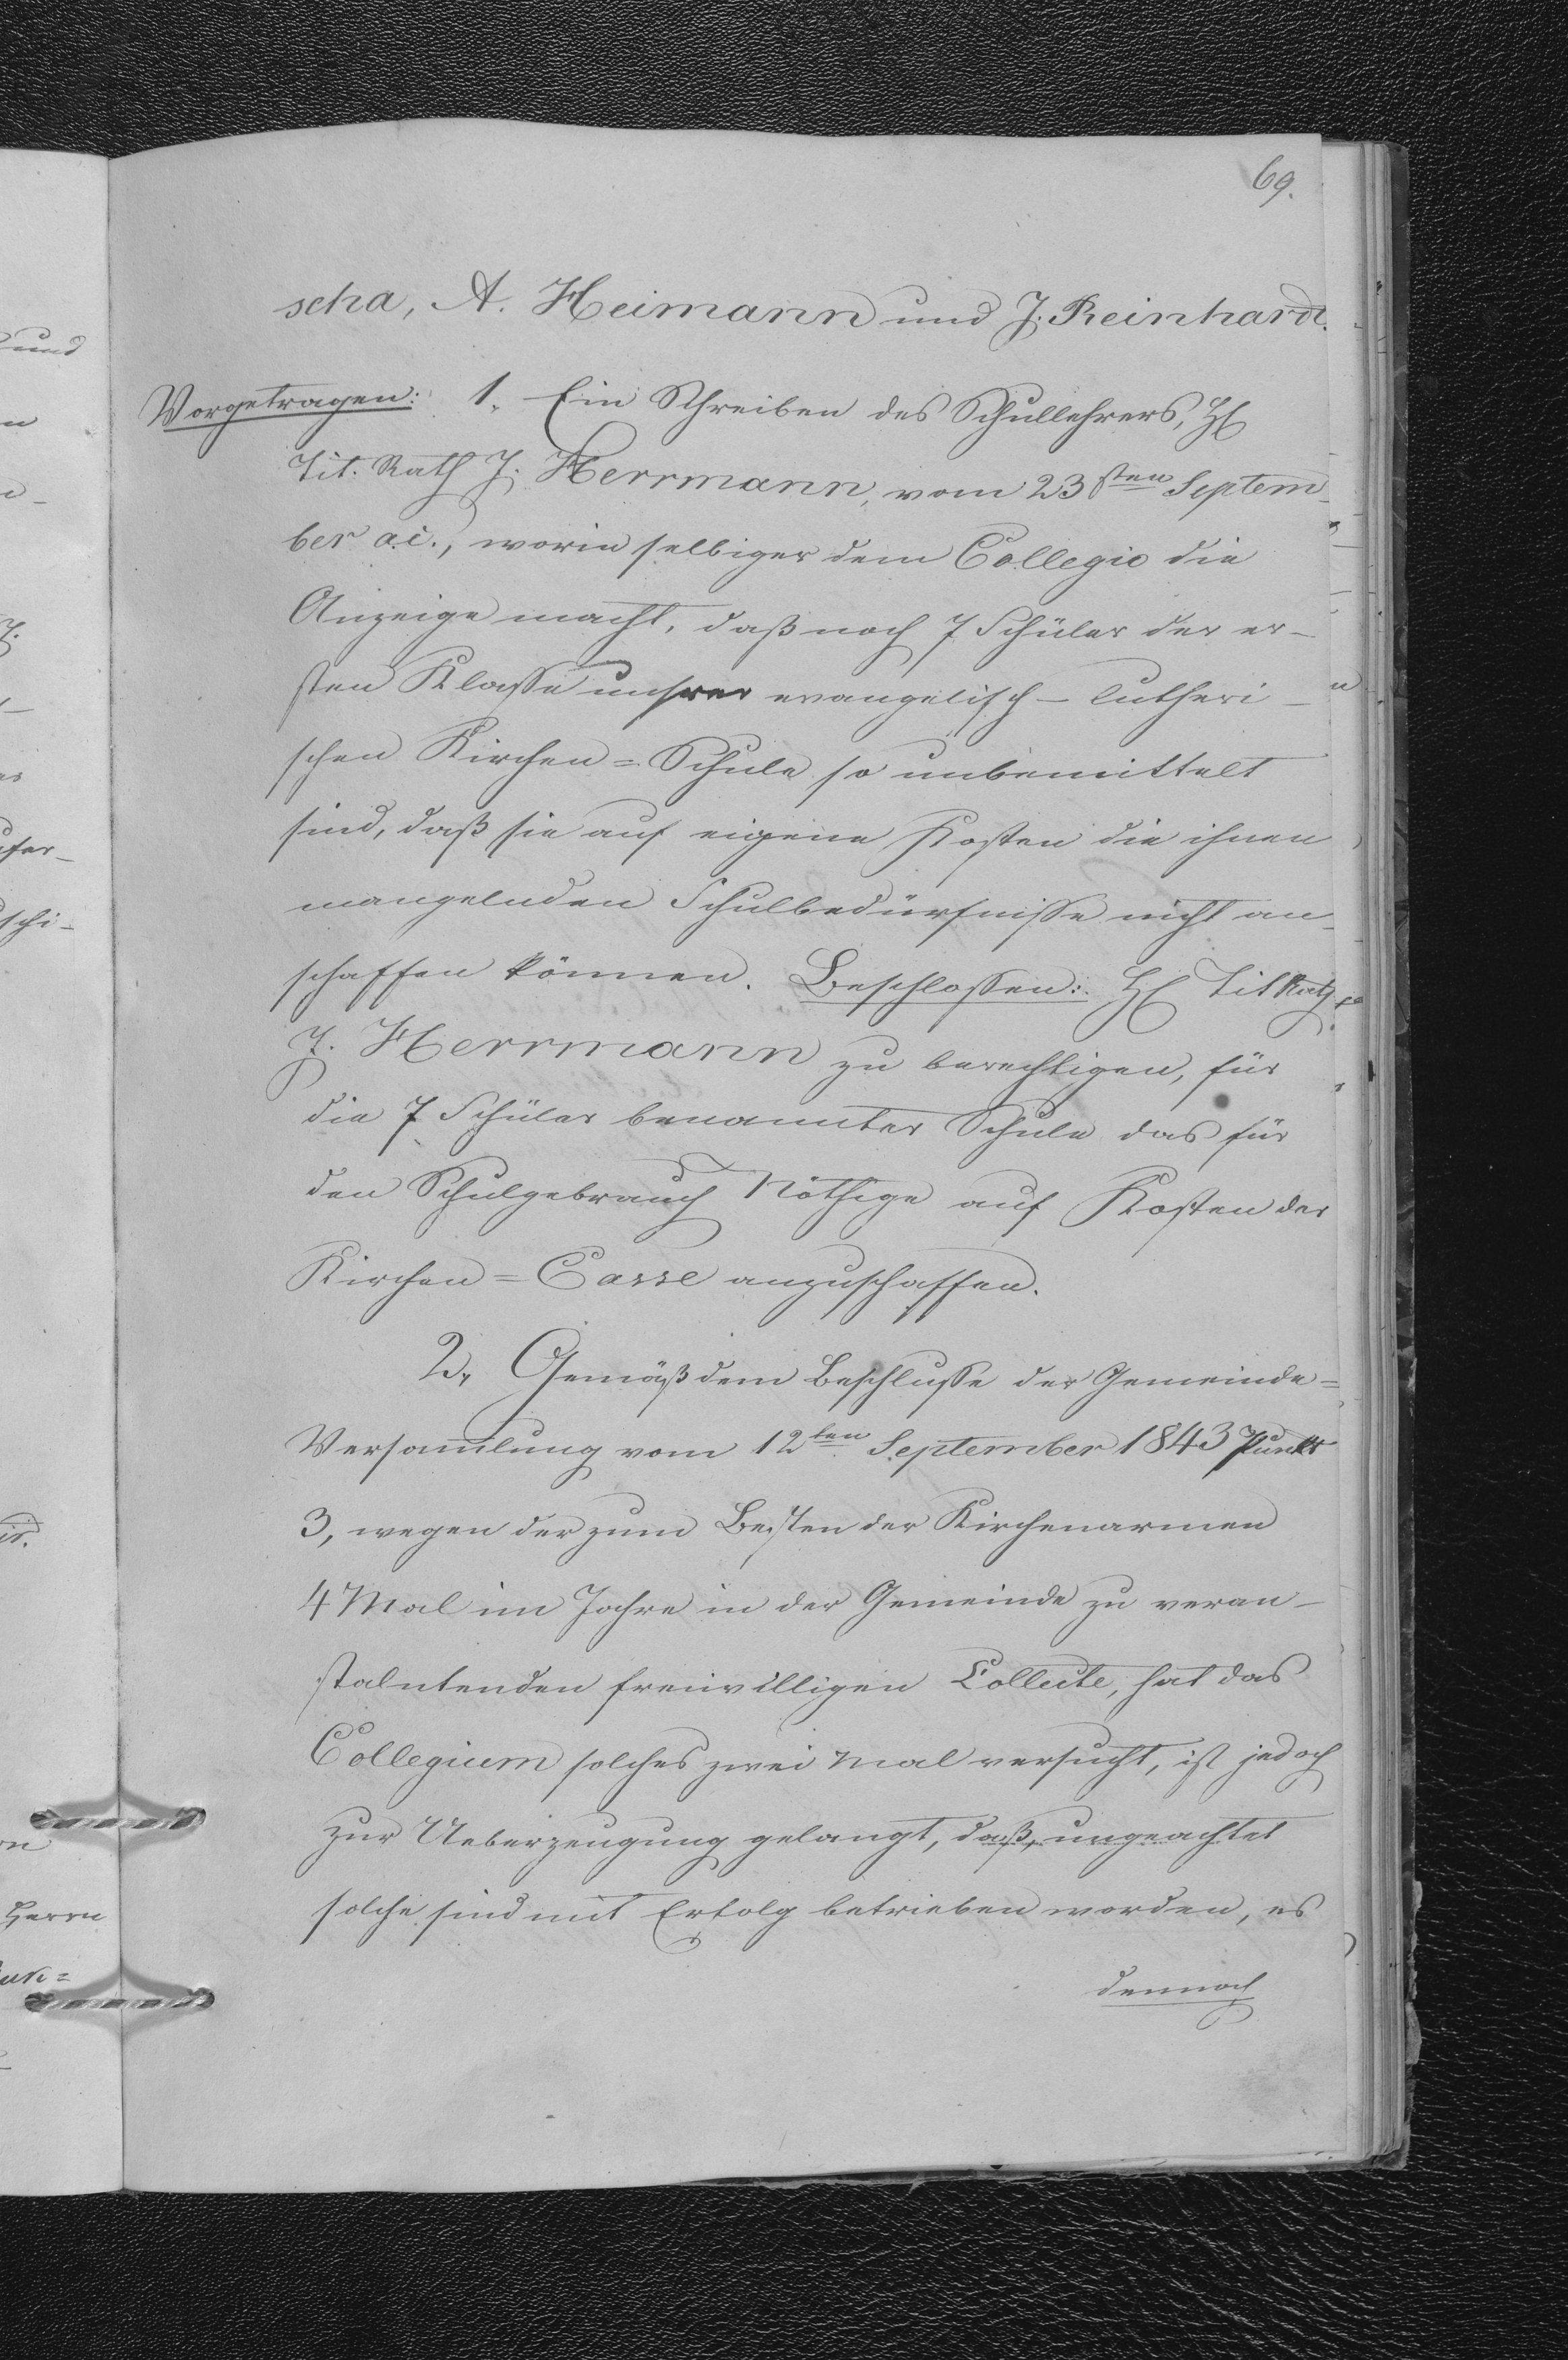 69.
scha, A. Heimann und J. Reinhardt.
Vorgetragen: 1. Ein Schreiben des Schullehrers, H
Tit. Rath J. Herrmann, vom 23sten Septem-
ber a.c., worin selbiger dem Collegio die
Anzeige macht, daß noch 7 Schüler der er-
sten Klasse unsrer evangelisch-lutheri-
schen Kirchen=Schule so unbemittelt
sind, daß sie auf eigene Kosten die ihnen
mangelnden Schulbedürfnisse nicht an-
schaffen können. Beschlossen: H Tit Rath
J. Herrmann zu berechtigen, für
die 7 Schüler benannter Schule das für
den Schulgebrauch Nöthige auf Kosten der
Kirchen=Casse anzuschaffen.
2, Gemäß dem Beschlusse der Gemeinde=
Versamlung vom 12ten September 1843 Punkt
3, wegen der zum Besten der Kirchenarmen
4 Mal im Jahre in der Gemeinde zu veran-
stalntenden freiwilligen Collecte, hat das
Collegium solches zwei Mal versucht, ist jedoch
zur Ueberzeugung gelangt, daß, ungeachtet
solche sind mit Erfolg betrieben worden, es
dennoch